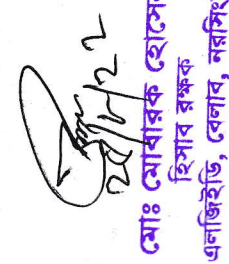 মোঃ মোবারক হোসে
হিসাব রক্ষক
এলজিইডি, বেলাব, নরসিং